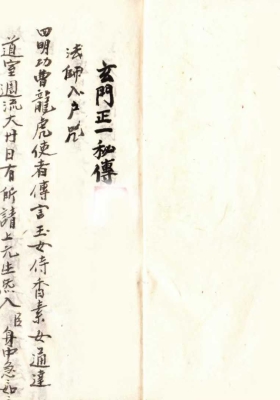 玄門正一秘傳
法師入户咒
四明功曹龍虎使者傳言玉女侍香素女通達
道室週流大廿日有所請上元生炁入臣身中急如